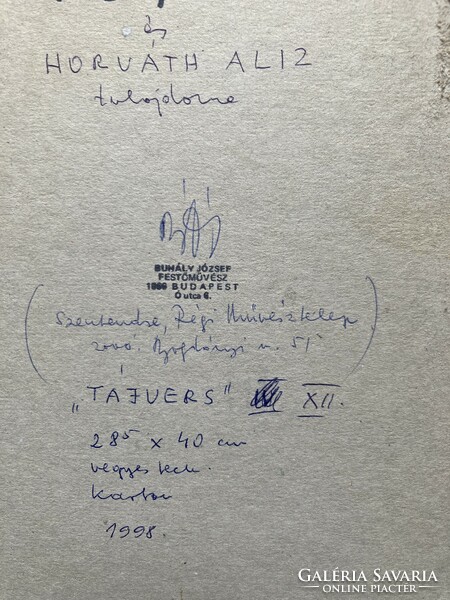 és
HORVÁTH ALIZ
tulajdona
BUHÁLY JÓZSEF
FESTŐMŰVÉSZ
1066 BUDAPEST
Ó utca 6.
(Szentendre, Régi Művésztelep
2000. Bogdányi u. 51)
„TÁJVERS" XII.
28⁵ x 40 cm
vegyes tech.
karton
1998.
GALÉRIA SAVARIA
ONLINE PIACTÉR